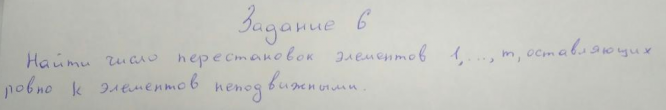 Задание 6
Найти число перестановок элементов 1,..., m, оставляющих
ровно k элементов неподвижными.